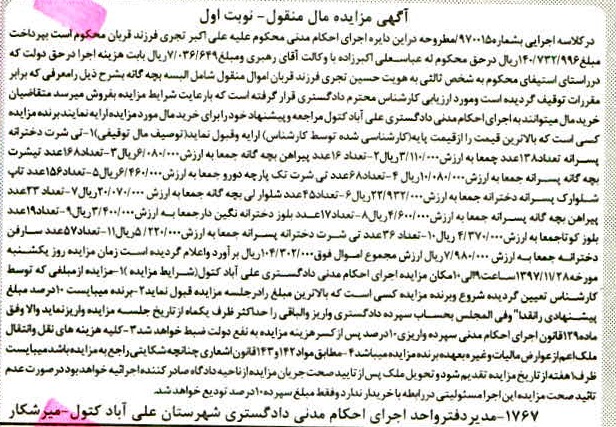 آگهی مزایده مال منقول- نوبت اول
درکلاسه اجرایی بشماره ۹۷۰۰۱۵/مطروحه دراین دایره اجرای احکام مدنی محکوم علیه علی اکبر تجری فرزند قربان محکوم است بپرداخت
مبلغ۱۴۰/۷۳۲/۹۹۶ریال درحق محکوم له عباسعلی اکبرزاده با وکالت آقای رهبری ومبلغ۷/۰۳۶/۶۴۹ریال بابت هزینه اجرا درحق دولت که
درراستای استیفای محکوم به شخص ثالثی به هویت حسین تجری فرزند قربان اموال منقول شامل البسه بچه گانه بشرح ذیل رامعرفی که برابر
مقررات توقیف گردیده است ومورد ارزیابی کارشناس محترم دادگستری قرار گرفته است که بارعایت شرایط مزایده بفروش میرسد متقاضیان
خرید مال میتوانند به اجرای احکام مدنی دادگستری علی آبادکتول مراجعه وپیشنهاد خود را برای خرید مال مورد مزایده ارایه نمایند برنده مزایده
کسی است که بالاترین قیمت را ازقیمت پایه(کارشناسی شده توسط کارشناس) ارایه وقبول نماید(توصیف مال توقیفی)۱-تی شرت دخترانه
پسرانه تعداد۱۳۸عدد جمعا به ارزش ۳/۱۱۰/۰۰۰ریال۲-تعداد ۱۶عدد پیراهن بچه گانه جمعا به ارزش ۶/۰۸۰/۰۰۰ریال۳-تعداد۱۶۸عدد تیشرت
بچه گانه پسرانه جمعا به ارزش ۱۰/۰۸۰/۰۰۰ریال ۴-تعداد۶۸عدد تی شرت تک پارچه دورو جمعا به ارزش ۶/۴۶۰/۰۰۰ریال۵-تعداد۱۵۶عدد تاپ
شلوارک پسرانه دخترانه جمعا به ارزش ۲۳/۹۳۲/۰۰۰ریال۶-تعداد۴۵عدد شلوار لی بچه گانه جمعا به ارزش ۲۰/۰۷۰/۰۰۰ریال۷-تعداد ۲۳عدد
پیراهن بچه گانه پسرانه جمعا به ارزش ۴/۶۰۰/۰۰۰ریال۸-تعداد۱۷عدد بلوز دخترانه نگین دارجمعا به ارزش ۳/۴۰۰/۰۰۰ریال۹-تعداد۱۹عدد
بلوز کوتاه جمعا به ارزش ۴/۳۷۰/۰۰۰ریال ۱۰-تعداد ۳۶عدد تی شرت دخترانه پسرانه جمعا به ارزش ۵/۲۲۰/۰۰۰ریال۱۱-تعداد۵۷عدد سارفن
دخترانه جمعا به ارزش ۷/۹۸۰/۰۰۰ریال ارزش مجموع اموال فوق۱۰۴/۳۰۲/۰۰۰ریال برآورد واعلام گردیده است زمان مزایده روز یکشنبه
مورخه۱۳۹۷/۱۱/۲۸ساعت۹الی۱۰مکان مزایده اجرای احکام مدنی دادگستری علی آباد کتول(شرایط مزایده )۱-مزایده ازمبلغی که توسط
کارشناس تعیین گردیده شروع وبرنده مزایده کسی است که بالاترین مبلغ رادرجلسه مزایده قبول نماید۲-برنده میبایست ۱۰درصد مبلغ
پیشنهادی رانقدا" وفی المجلس بحساب سپرده دادگستری واریز والباقی را حداکثر ظرف یکماه از تاریخ جلسه مزایده واریزنماید والا وفق
ماده۱۲۹قانون اجرای احکام مدنی سپرده واریزی ۱۰درصد پس ازکسر هزینه مزایده به نفع دولت ضبط خواهد شد۳-کلیه هزینه های نقل وانتقال
ملک اعم ازعوارض مالیات وغیره بعهده برنده مزایده میباشد۴-مطابق مواد۱۴۲و۱۴۳قانون اشعاری چنانچه شکایتی راجع به مزایده باشد میبایست
ظرف۱هفته از تاریخ مزایده تقدیم شود و تحویل ملک پس ازتایید صحت جریان مزایده ازناحیه دادگاه صادرکننده اجرائیه خواهد بود درصورت عدم
تائید صحت مزایده این اجرا مسئولیتی دررابطه با خریدار ندارد وفقط مبلغ سپرده ۱۰درصد تودیع خواهد شد.
۱۷۶۷-مدیردفترواحد اجرای احکام مدنی دادگستری شهرستان علی آباد کتول-میرشکار